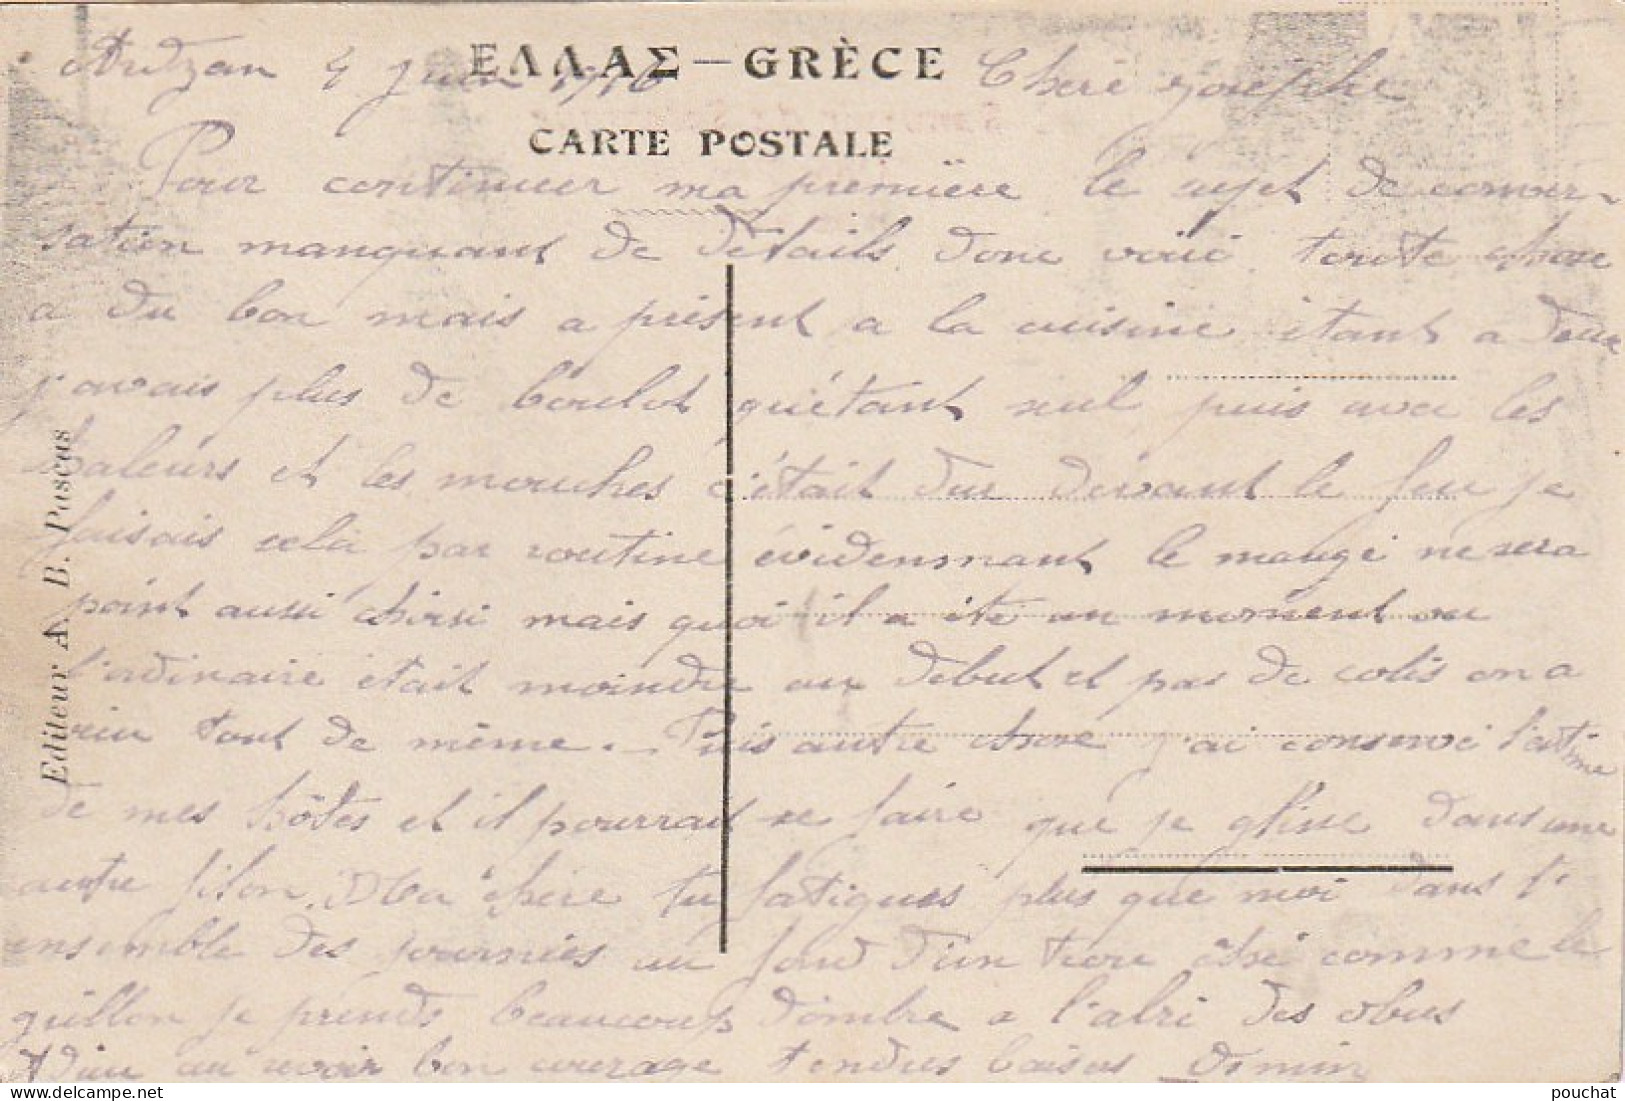 ΕΛΛΑΣ — GRÈCE
CARTE POSTALE
Editeur A. B. Pascas
4 juin 1916 Chère Josèphe
Pour continuer ma première le sujet de conver-
sation manquant de détails donc voici toute chose
a du bon mais a présent a la cuisine étant a deux
j'avais plus de boulot qu'étant seul puis avec les
chaleurs et les mouches c'était dur devant le feu je
faisais cela par routine évidenmant le mangé ne sera
point aussi choisi mais quoi il a été un moment ou
l'ordinaire était moindre au début et pas de colis on a
rien tout de même. — Puis autre chose j'ai conservé l'estime
de mes hôtes et il pourrait se faire que je glisse dans une
autre filon. Ma chère tu fatigues plus que moi dans l'
ensemble des journées au fond d'un trou ôsé comme le
quillon je prends beaucoup d'ombre a l'abri des obus
Adieu au revoir bon courage tendres baisers Osmin
pouchat